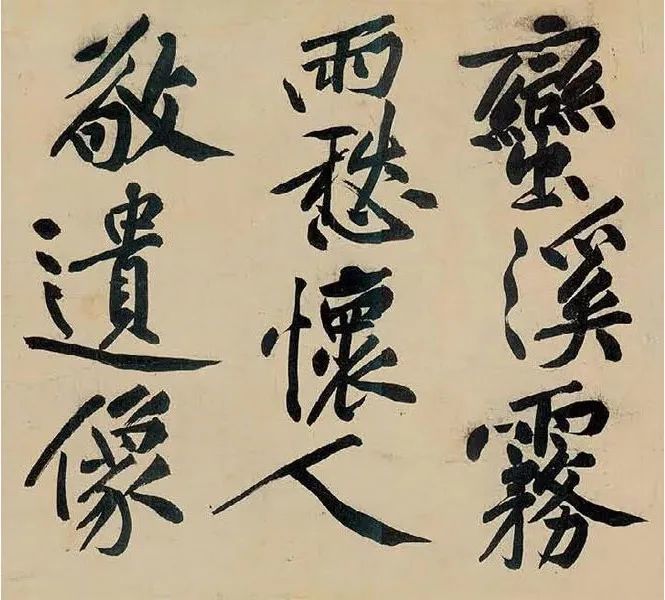 蠻溪霧
雨愁懷人
敬遺像